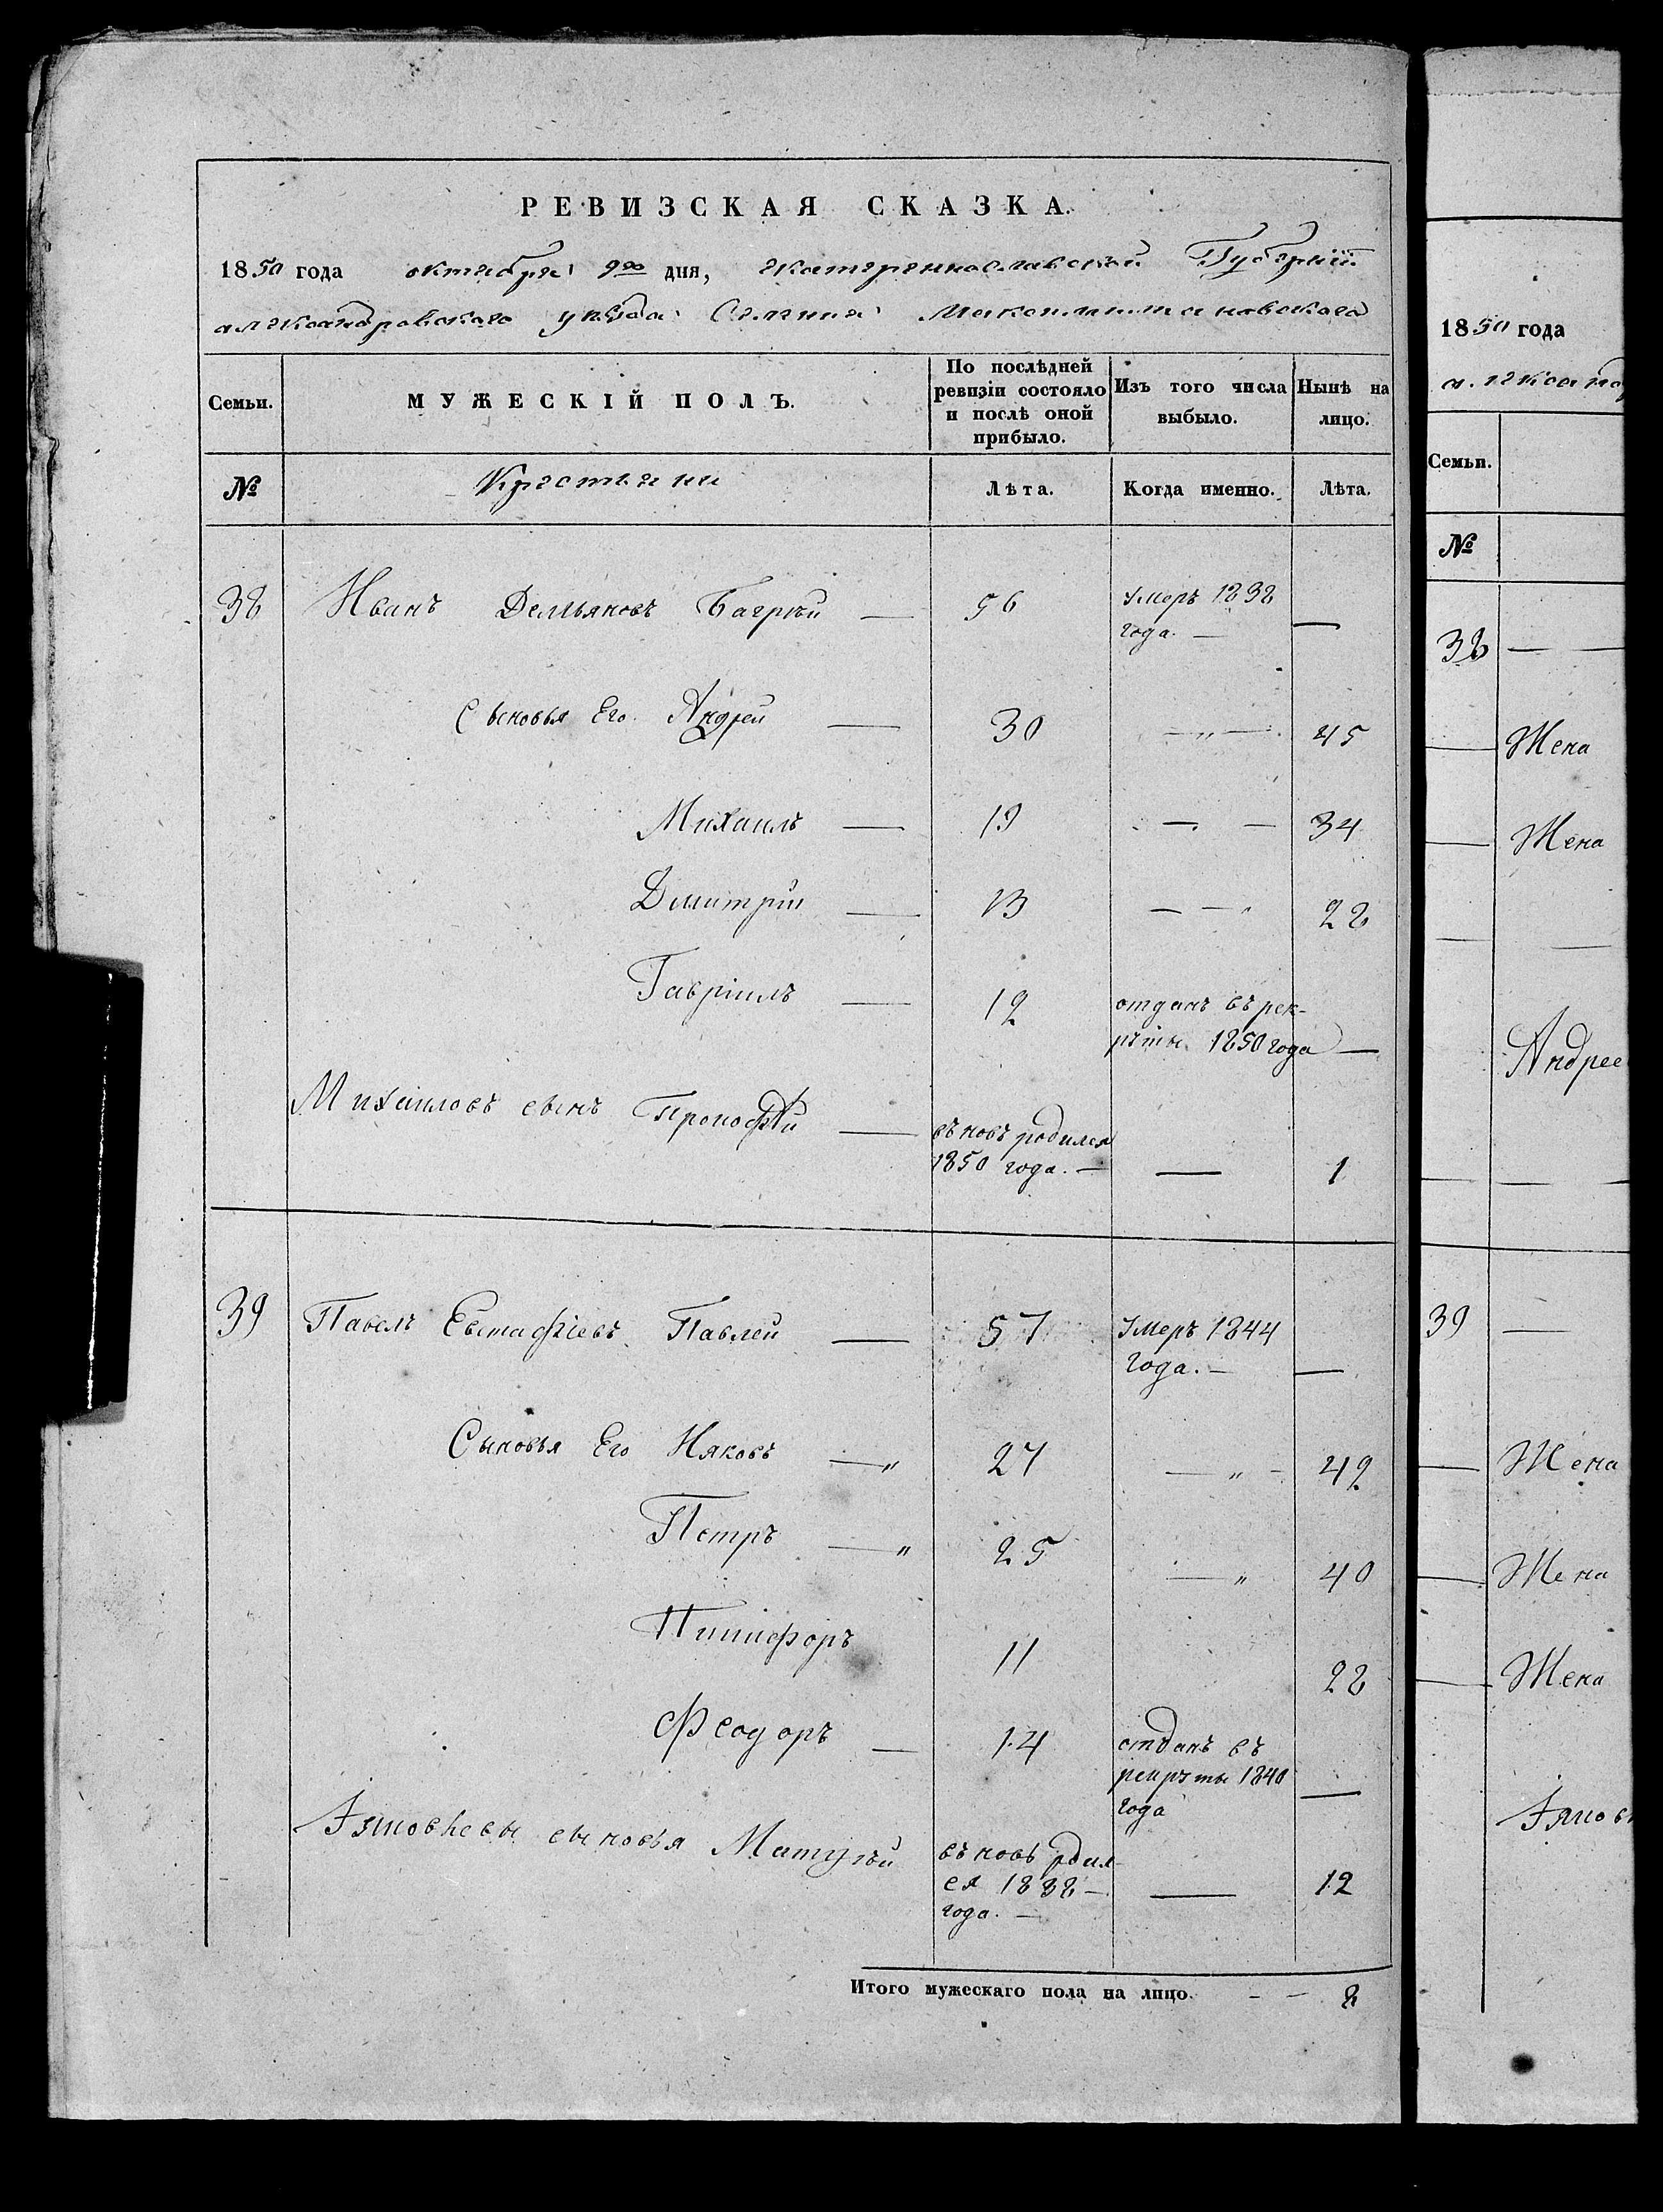 РЕВИЗСКАЯ СКАЗКА.
1850 года октября 9го дня, екатеринославской Губерніи
александровского уезда Селения
Семьи. МУЖЕСКІЙ ПОЛЪ. По послѣдней ревизіи состояло и послѣ оной прибыло. Изъ того числа выбыло. Нынѣ на лицо.
№ Крестьяни Лѣта. Когда именно. Лѣта.
38 Иванъ Демьяновъ Багрѣй — 56 Умеръ 1838 года. — —
Сыновья Его Андрей — 30 — „ — 45
Михаилъ — 19 — — 34
Дмитрій — 13 — — 28
Гавріилъ — 12 отданъ въ рек-
рѣты 1850 года —
Михаиловъ сынъ Прокофій — въновь родился
1850 года. — — 1
39 Павелъ Евстафіевъ Павлей — 57 Умеръ 1844
года. — —
Сыновья Его Ияковъ — „ 27 — „ — 42
Петръ — „ 25 — „ 40
11 28
Феодоръ — 14 отданъ въ
рекрѣты 1840
года —
сыновья въновь рдил-
ся 1838 —
года. — — 12
Итого мужескаго пола на лицо. — — 8
1850 года
Семьи.
№
38 —
— Жена
— Жена
Андрее
39 —
— Жена
— Жена
— Жена